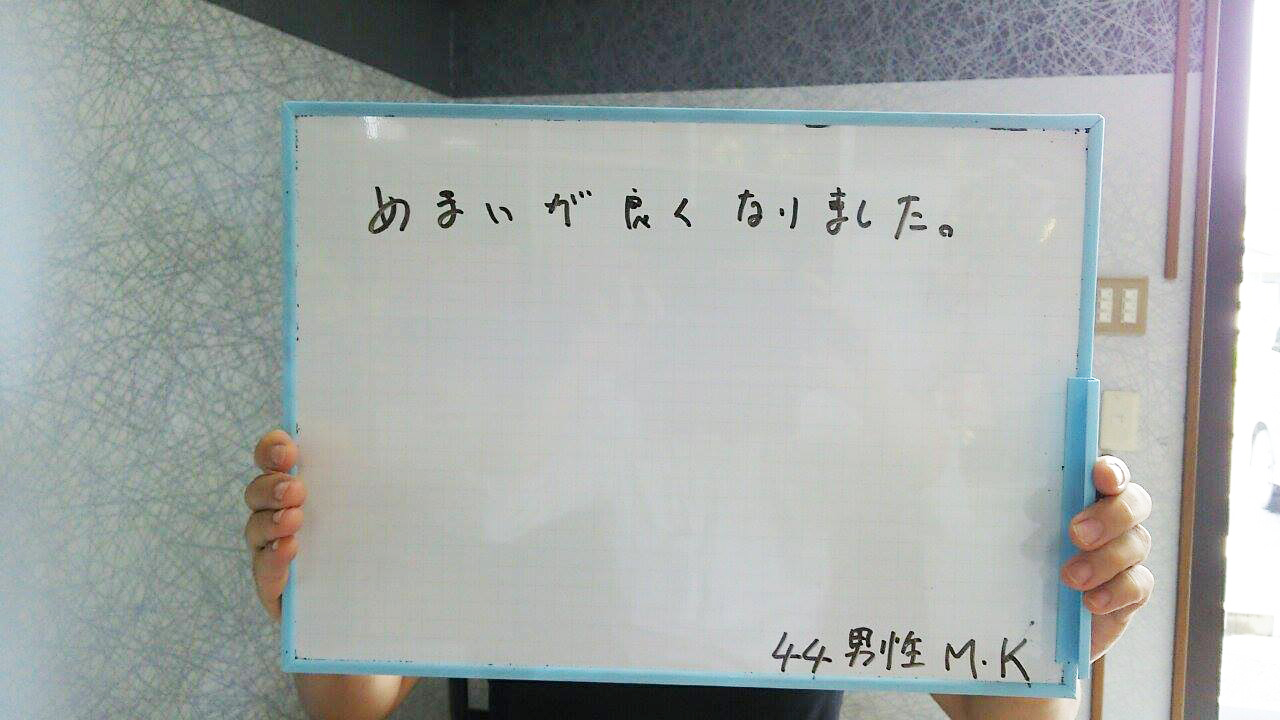 めまいが良くなりました。
44 男性 M.K